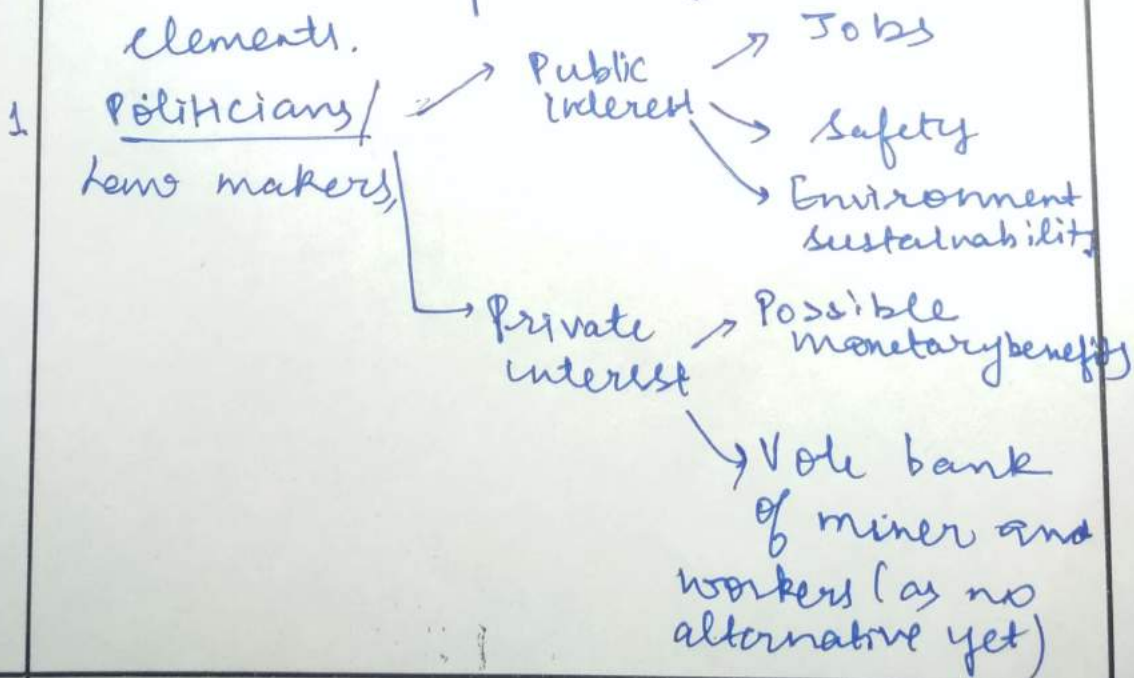 elements.
1
Politicians/
Law makers,
Public
interest
Jobs
Safety
Environment
sustainability
Private
interest
Possible
monetary benefits
Vote bank
of miner and
workers (as no
alternative yet)